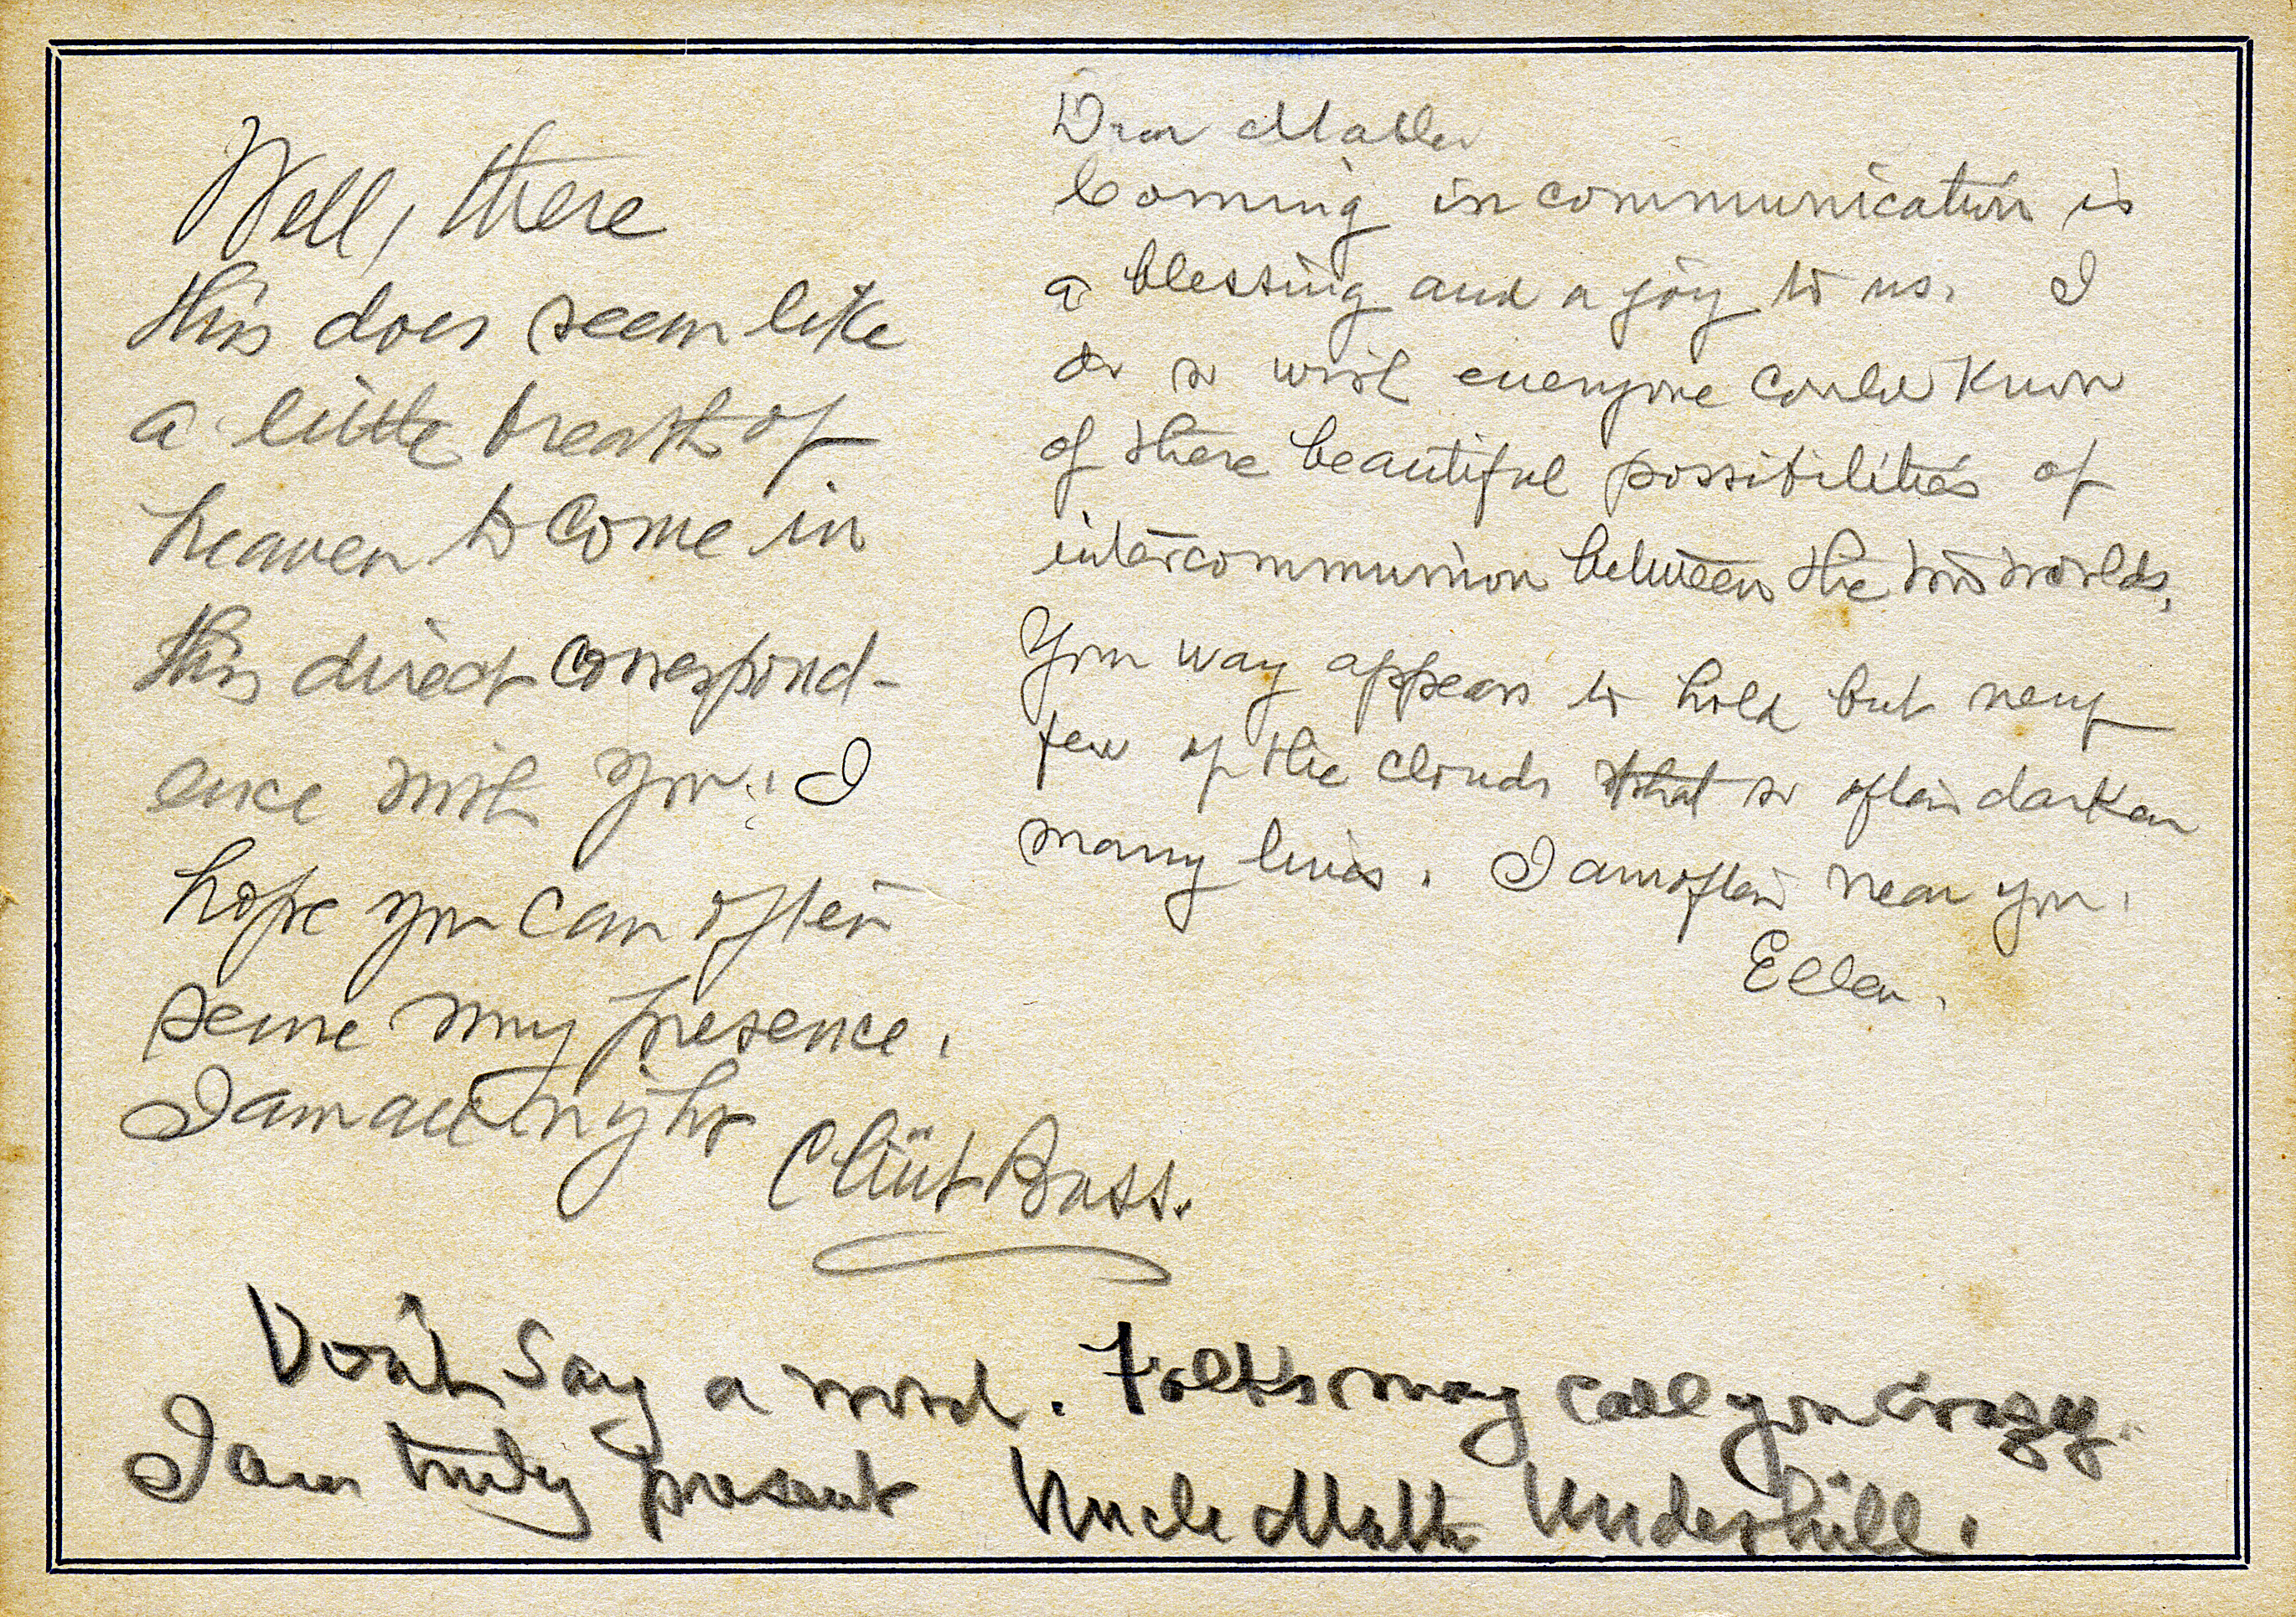 Well, there
this does seem like
a little breath of
heaven to come in
this direct correspond-
ence with you. I
hope you can often
sense my presence.
I am all right
Clint Bass.
Dear Mable
Coming in communication is
a blessing and a joy to us. I
do so wish everyone could know
of these beautiful possibilities of
intercommunion between the two worlds.
Your way appears to hold but very
few of the clouds that so often darken
many lives. I am often near you.
Ellen.
Don't say a word. Folks may call you crazy.
I am truly present Uncle Matt Underhill.